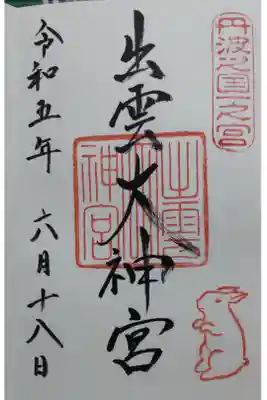 丹波國一之宮
出雲大神宮
出雲大神宮
令和五年 六月十八日